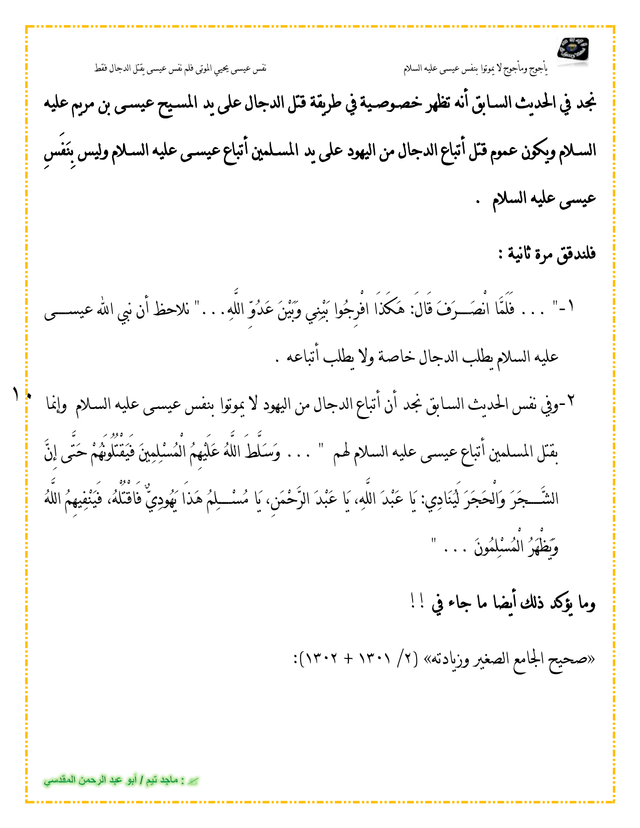 يأجوج ومأجوج لا يموتوا بنفس عيسى عليه السلام نفس عيسى يحيي الموتى فلم نفس عيسى يقتل الدجال فقط
نجد في الحديث السابق أنه تظهر خصوصية في طريقة قتل الدجال على يد المسيح عيسى بن مريم عليه
السلام ويكون عموم قتل أتباع الدجال من اليهود على يد المسلمين أتباع عيسى عليه السلام وليس بِنَفَسِ
عيسى عليه السلام .
فلندقق مرة ثانية :
١-" ... فَلَمَّا انْصَرَفَ قَالَ: هَكَذَا افْرِجُوا بَيْنِي وَبَيْنَ عَدُوِّ اللَّهِ..." نلاحظ أن نبي الله عيسى
عليه السلام يطلب الدجال خاصة ولا يطلب أتباعه .
٢-وفي نفس الحديث السابق نجد أن أتباع الدجال من اليهود لا يموتوا بنفس عيسى عليه السلام وإنما
١٠
بقتل المسلمين أتباع عيسى عليه السلام لهم " ... وَسَلَّطَ اللَّهُ عَلَيْهِمُ الْمُسْلِمِينَ فَيَقْتُلُونَهُمْ حَتَّى إِنَّ
الشَّجَرَ وَالْحَجَرَ لَيُنَادِي: يَا عَبْدَ اللَّهِ، يَا عَبْدَ الرَّحْمَنِ، يَا مُسْلِمُ هَذَا يَهُودِيٌّ فَاقْتُلْهُ، فَيَنْفِيهِمُ اللَّهُ
وَيَظْهَرُ الْمُسْلِمُونَ ... "
وما يؤكد ذلك أيضا ما جاء في !!
«صحيح الجامع الصغير وزيادته» (٢/ ١٣٠١ + ١٣٠٢):
: ماجد تيم / أبو عبد الرحمن المقدسي